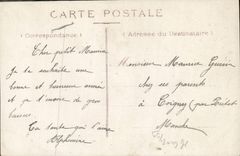 CARTE POSTALE
(Correspondance)
(Adresse du Destinataire)
Cher petit Maurice
Je te souhaite une
bonne et heureuse année
et je t'envoie de gros
baisers
Ta tante qui t'aime
Alphonsine
Monsieur Maurice
chez ses parents
à Coigny (par Prétot
Manche